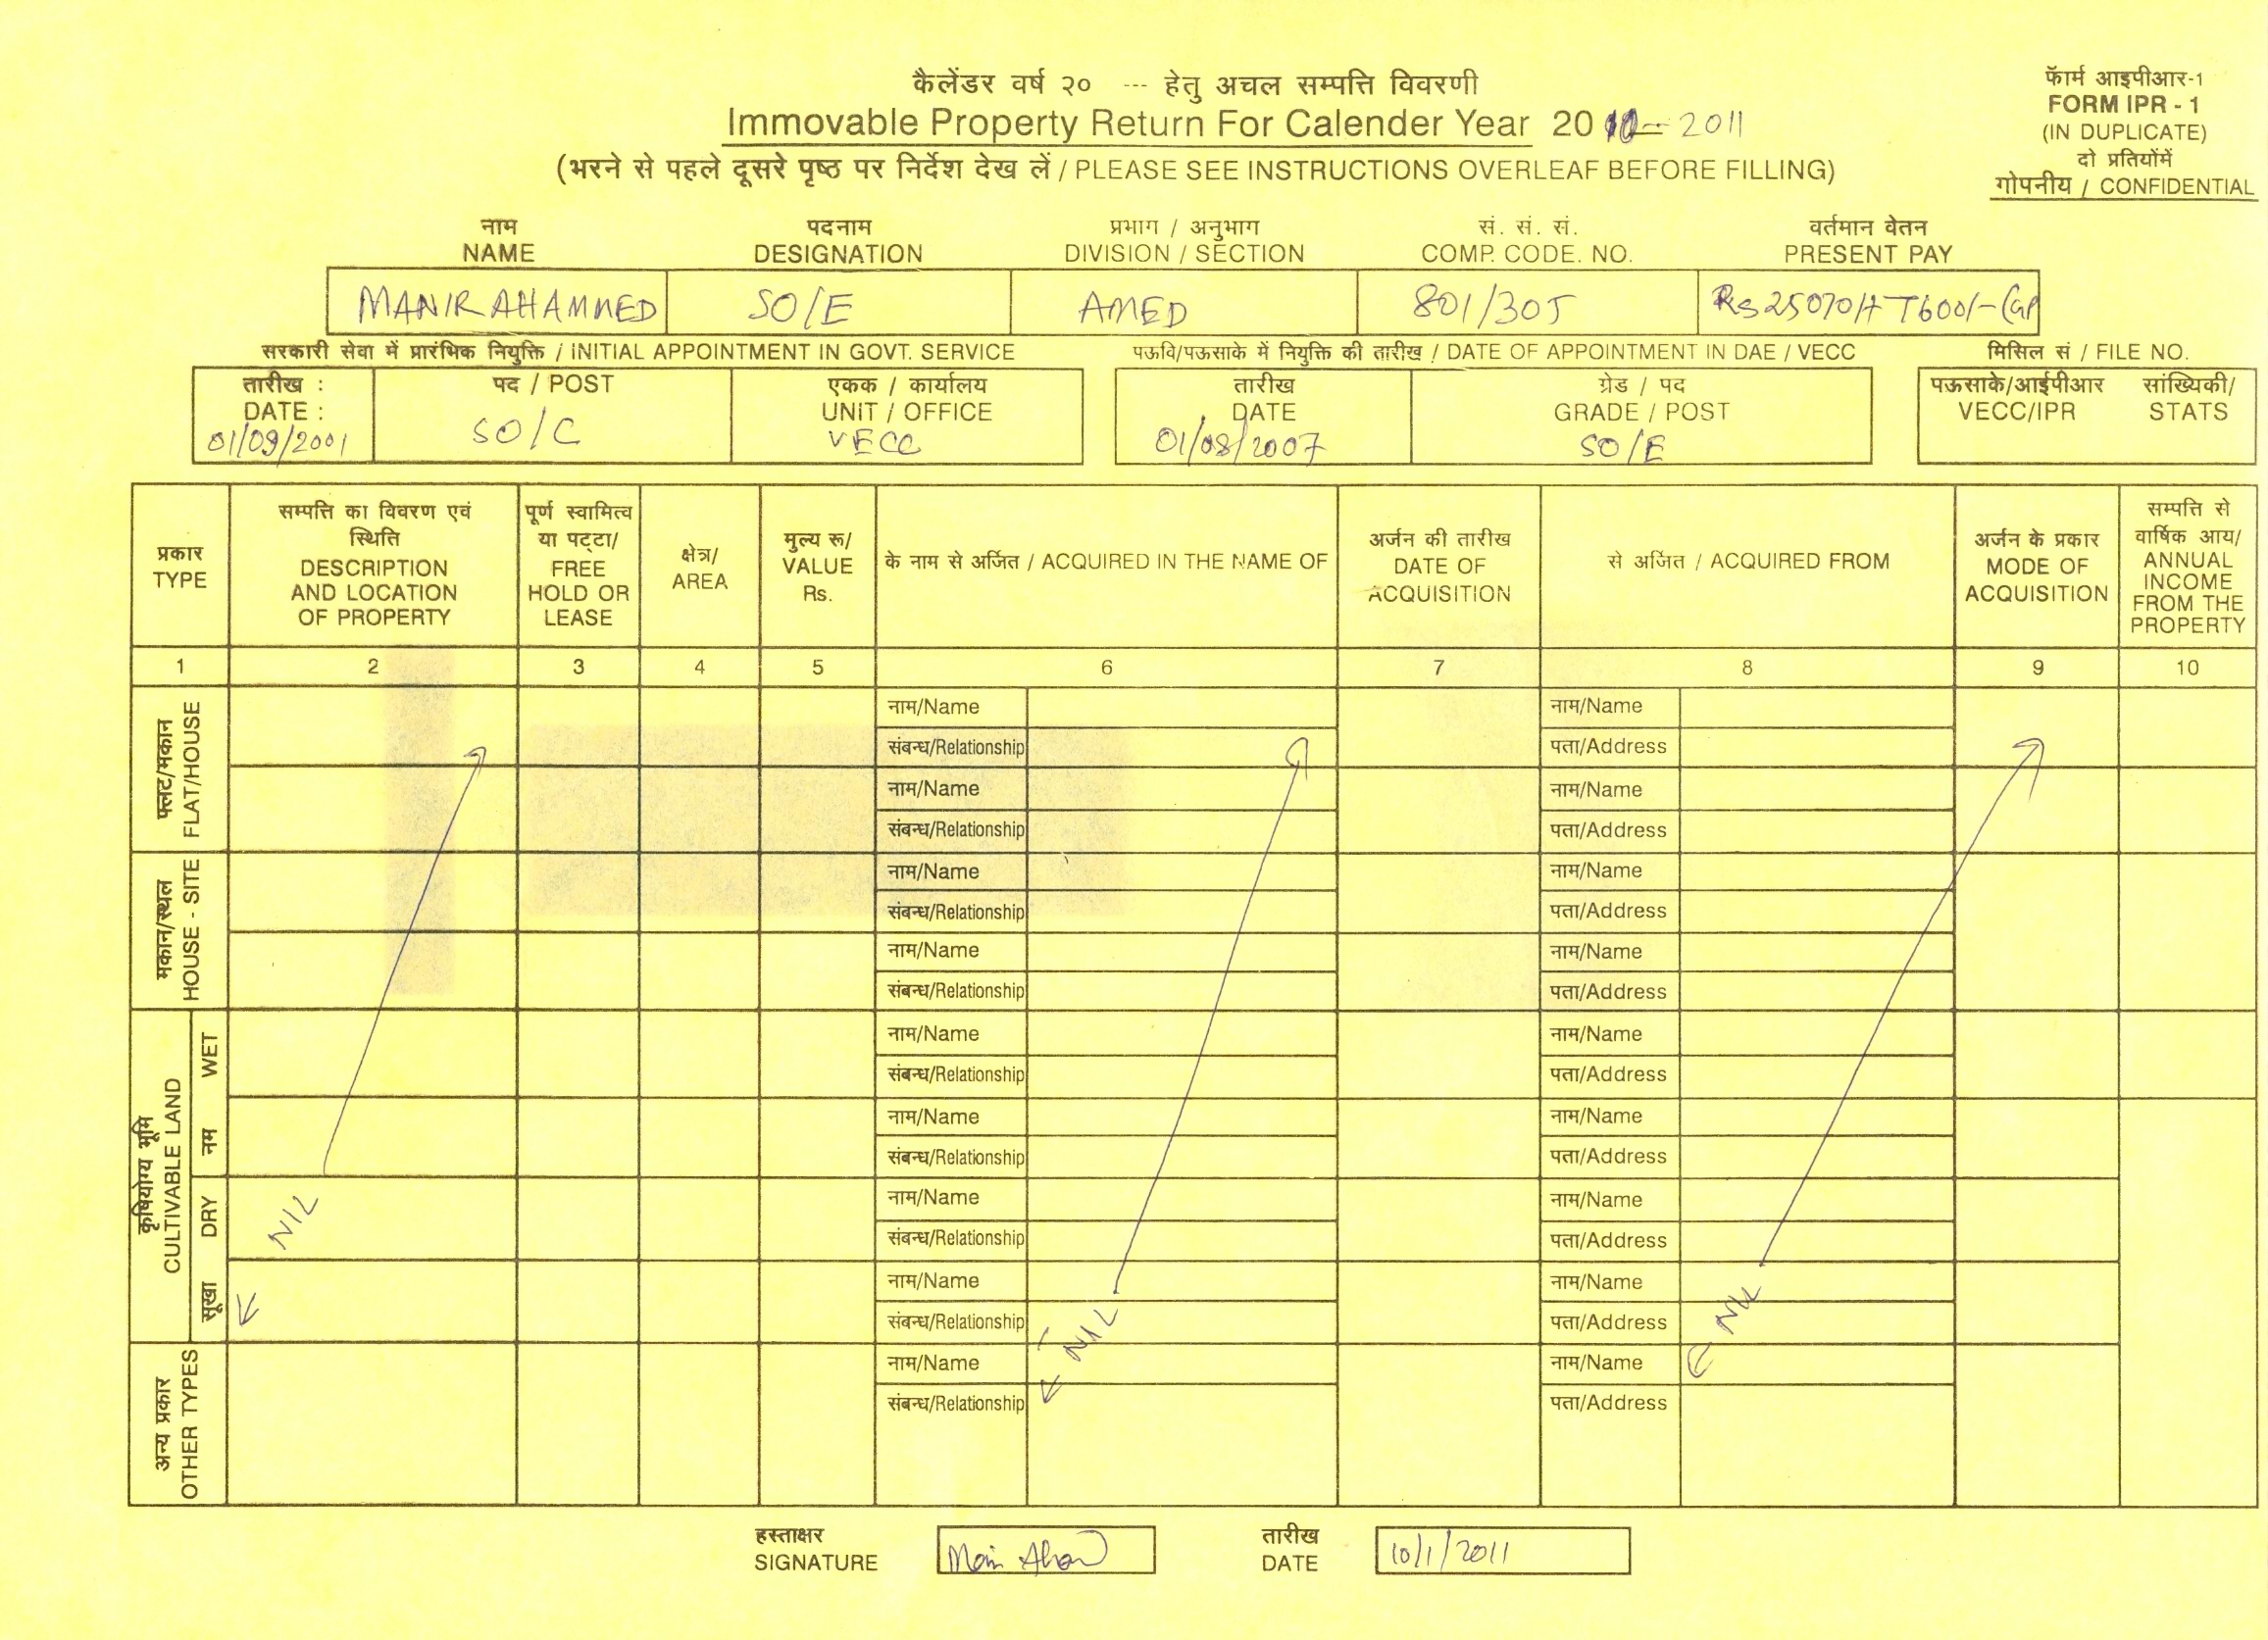 कैलेंडर वर्ष २० --- हेतु अचल सम्पत्ति विवरणी
Immovable Property Return For Calender Year 2010-2011
(भरने से पहले दूसरे पृष्ठ पर निर्देश देख लें / PLEASE SEE INSTRUCTIONS OVERLEAF BEFORE FILLING)
फॅार्म आइपीआर-1
FORM IPR - 1
(IN DUPLICATE)
दो प्रतियोंमें
गोपनीय / CONFIDENTIAL
नाम पदनाम प्रभाग / अनुभाग सं. सं. सं. वर्तमान वेतन
NAME DESIGNATION DIVISION / SECTION COMP. CODE. NO. PRESENT PAY
MANIR AHAMMED SO/E AMED 801/305 Rs 25070/+ 7600/- (GP
सरकारी सेवा में प्रारंभिक नियुक्ति / INITIAL APPOINTMENT IN GOVT. SERVICE पऊवि/पऊसाके में नियुक्ति की तारीख / DATE OF APPOINTMENT IN DAE / VECC मिसिल सं / FILE NO.
तारीख : पद / POST एकक / कार्यालय तारीख ग्रेड / पद पऊसाके/आईपीआर सांख्यिकी/
DATE : UNIT / OFFICE DATE GRADE / POST VECC/IPR STATS
01/09/2001 SO/C VECC 01/08/2007 SO/E
प्रकार
TYPE
सम्पत्ति का विवरण एवं
स्थिति
DESCRIPTION
AND LOCATION
OF PROPERTY
पूर्ण स्वामित्व
या पट्टा/
FREE
HOLD OR
LEASE
क्षेत्र/
AREA
मुल्य रू/
VALUE
Rs.
के नाम से अर्जित / ACQUIRED IN THE NAME OF
अर्जन की तारीख
DATE OF
ACQUISITION
से अर्जित / ACQUIRED FROM
अर्जन के प्रकार
MODE OF
ACQUISITION
सम्पत्ति से
वार्षिक आय/
ANNUAL
INCOME
FROM THE
PROPERTY
1 2 3 4 5 6 7 8 9 10
फ्लट/मकान
FLAT/HOUSE
नाम/Name नाम/Name
संबन्ध/Relationship पता/Address
नाम/Name नाम/Name
संबन्ध/Relationship पता/Address
मकान/स्थल
HOUSE - SITE
नाम/Name नाम/Name
संबन्ध/Relationship पता/Address
नाम/Name नाम/Name
संबन्ध/Relationship पता/Address
कृषियोग्य भूमि
CULTIVABLE LAND
नम WET
नाम/Name नाम/Name
संबन्ध/Relationship पता/Address
नाम/Name नाम/Name
संबन्ध/Relationship पता/Address
सूखा DRY
NIL
नाम/Name नाम/Name
संबन्ध/Relationship पता/Address
नाम/Name नाम/Name
संबन्ध/Relationship NIL पता/Address NIL
अन्य प्रकार
OTHER TYPES
नाम/Name नाम/Name
संबन्ध/Relationship पता/Address
हस्ताक्षर तारीख
SIGNATURE DATE 10/1/2011